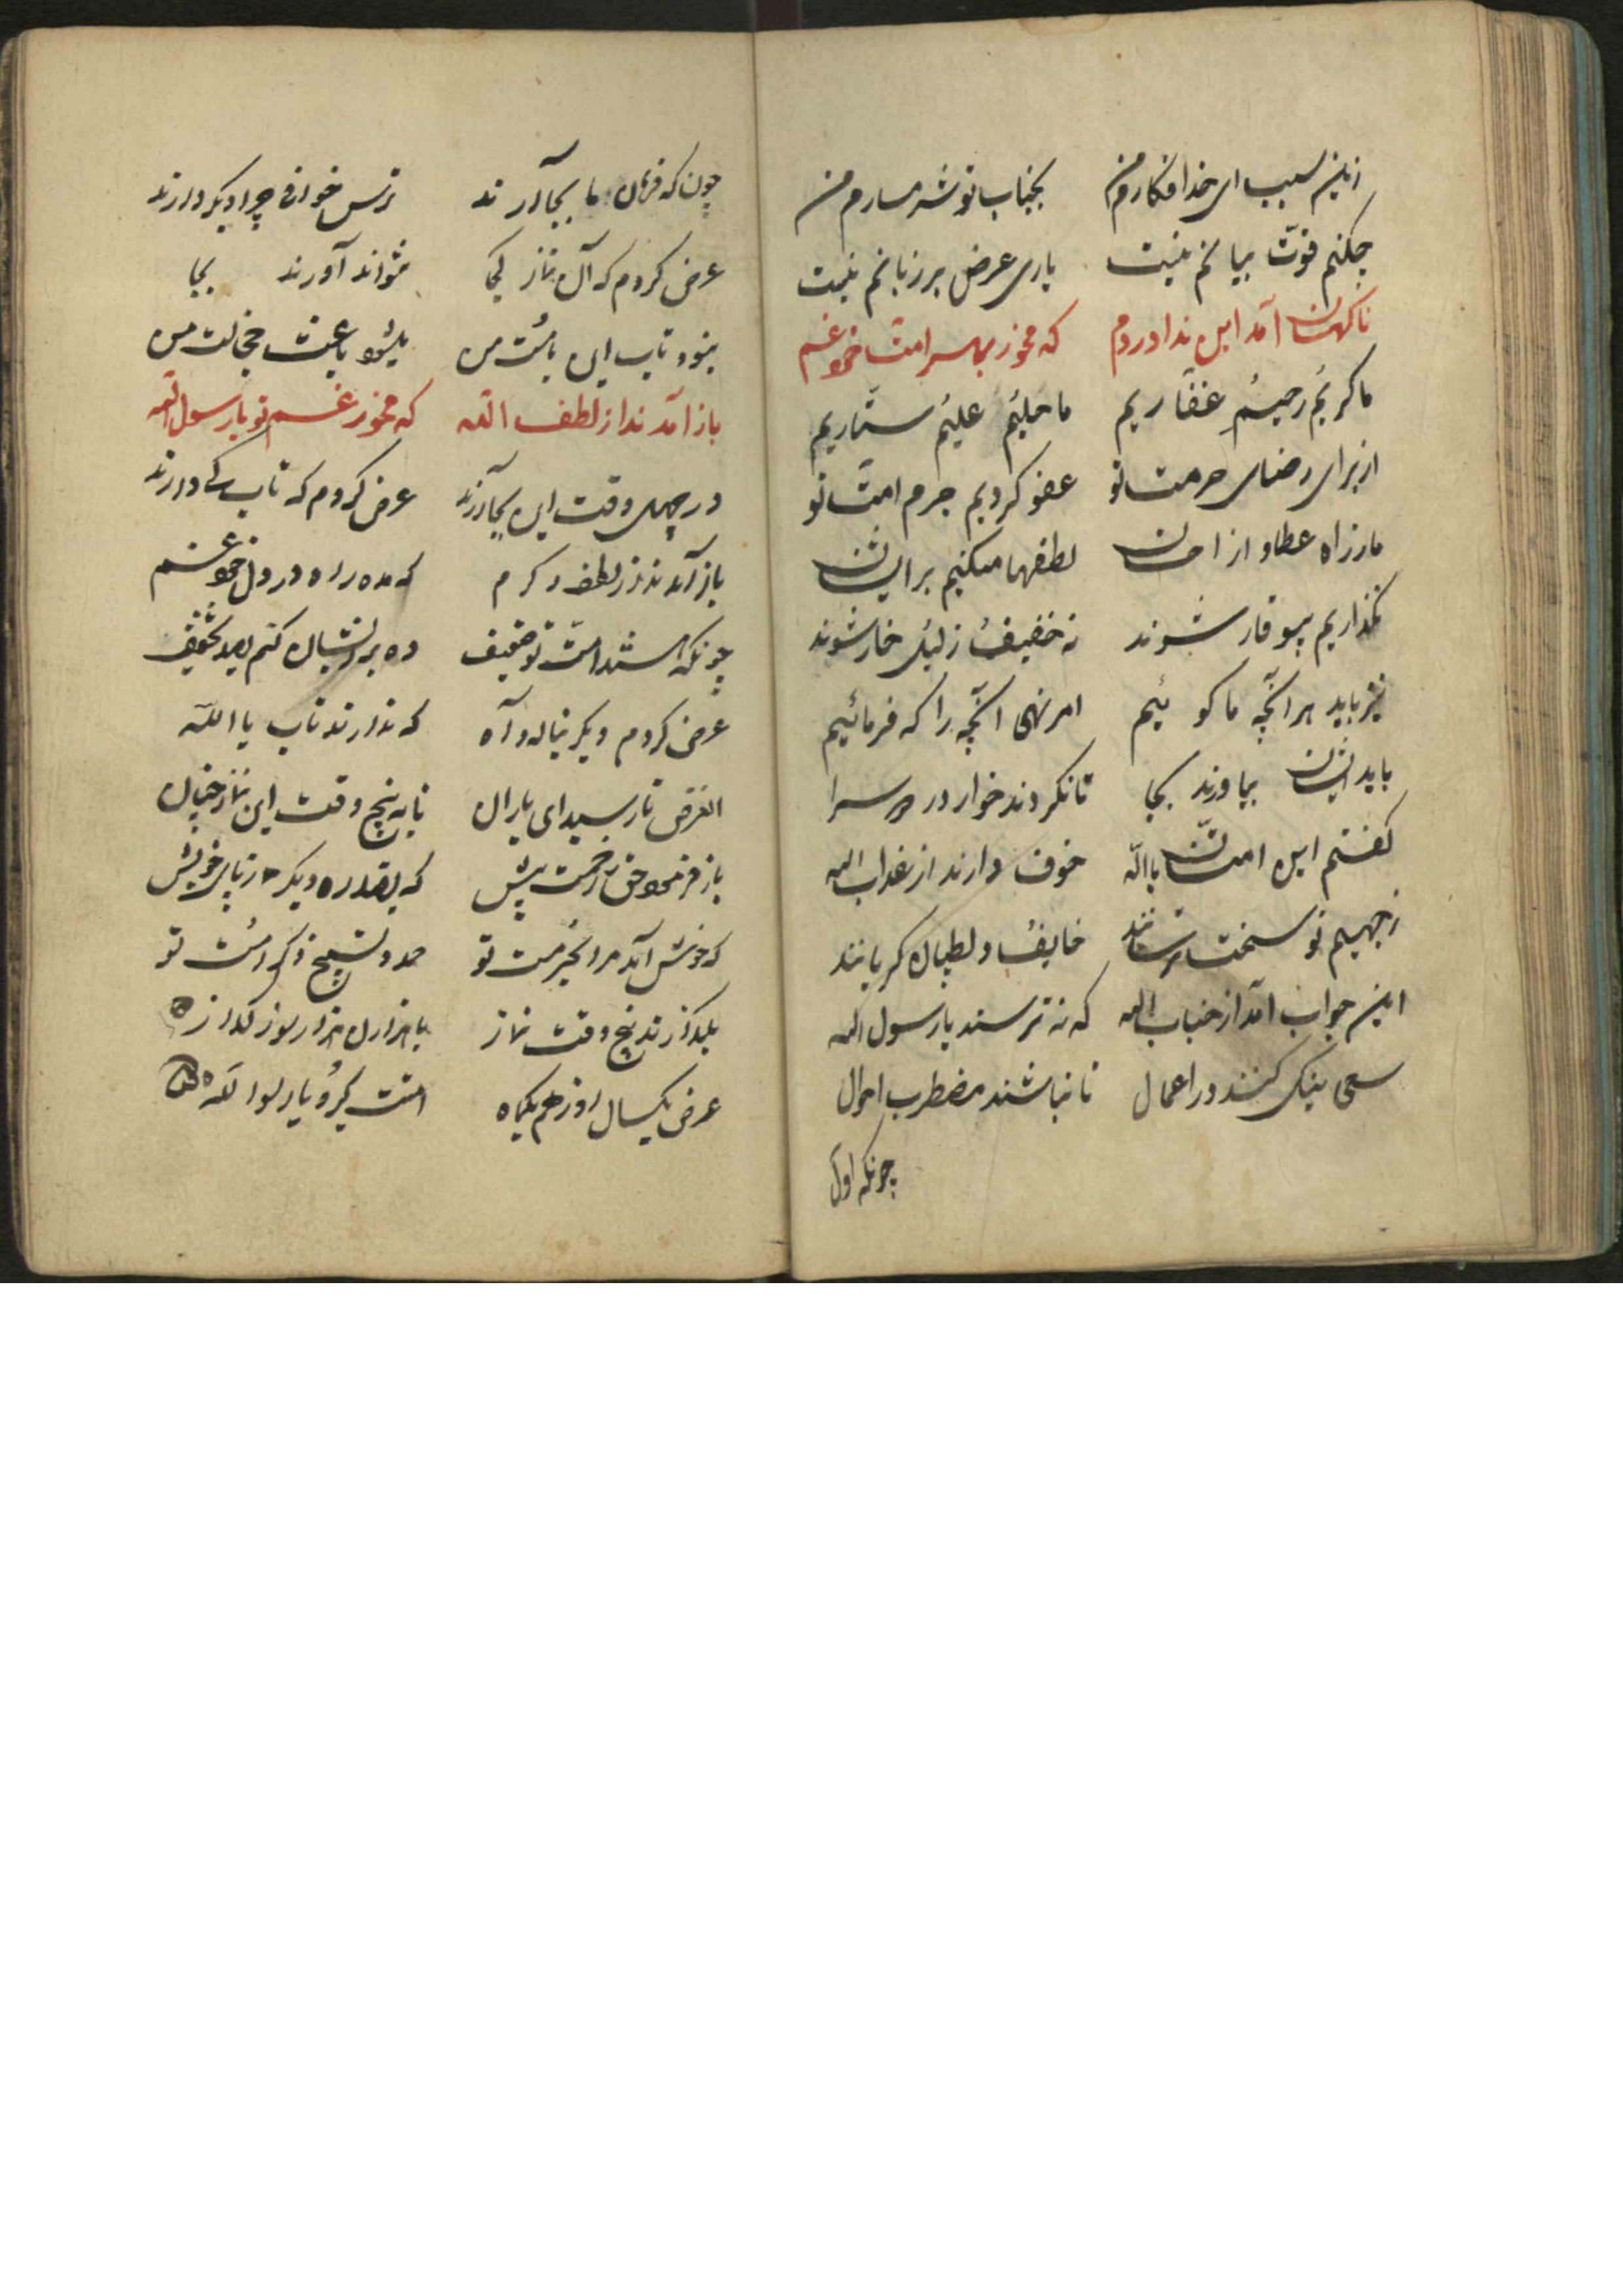 ازین سبب ای خدا فکارم من بجناب تو شرمسارم من
چکنم قوت بیانم نیست یاری عرض بر زبانم نیست
ناکهان آمد این ندا در دم که مخور بهر امتت غم
ما کریم رحیم غفاریم ما حلیم علیم ستاریم
از برای رضای حرمت تو عفو کردیم جرم امت تو
ما ز راه عطا و از احسان لطفها میکنیم بر ایشان
نگذاریم بیوقار شوند نه خفیف ذلیل خار شوند
نیز باید هر آنچه ما کوئیم امر نهی آنچه را که فرمائیم
باید ایشان بیاورند بجا تا نکردند خوار در سرا
کفتم این امتان یا الله خوف دارند از عذاب اله
ز جهیم تو سخت ترسانند خایف و لطپان کریانند
این جواب آمد از جناب اله که نه ترسند یا رسول اله
سعی نیک کنند در اعمال تا نباشند مضطرب احوال
چونکه اول
چون که فرمان ما بجا آرند ترس خوف چرا دیکر دارند
عرض کردم که آن نماز کجا نتوانند آورند بجا
نبود تاب این بامت من باعث خجالت من
باز آمد ندا ز لطف الله که مخور غم تو یا رسول الله
در چهل وقت این بجا آرند عرض کردم که تاب کی دارند
باز آمد ندا ز لطف و کرم که مده راه در دل خود غم
چونکه هستند امت تو ضعیف ده بر ایشان کنم تخفیف
عرض کردم دیکر بناله و آه که ندارند تاب یا الله
الغرض تا رسید ای یاران تا به پنج وقت این نماز
باز فرمود حق ز رحمت پیش که دیکر خویش
که خوش آید مرا بحرمت تو حمد و تسبیح ذکر امت تو
بگذارند پنج وقت نماز با هزاران هزار سوز گداز
عرض یکسال روزه یکماه امتت کیرد یا رسول الله